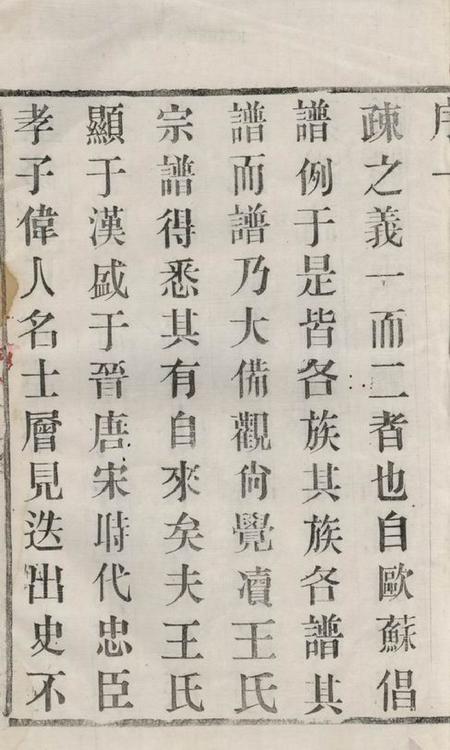 序一
疎之義一而二者也自歐蘇倡
譜例于是皆各族其族各譜其
譜而譜乃大備觀尙覺凟王氏
宗譜得悉其有自來矣夫王氏
顯于漢盛于晉唐宋時代忠臣
孝子偉人名士層見迭出史不